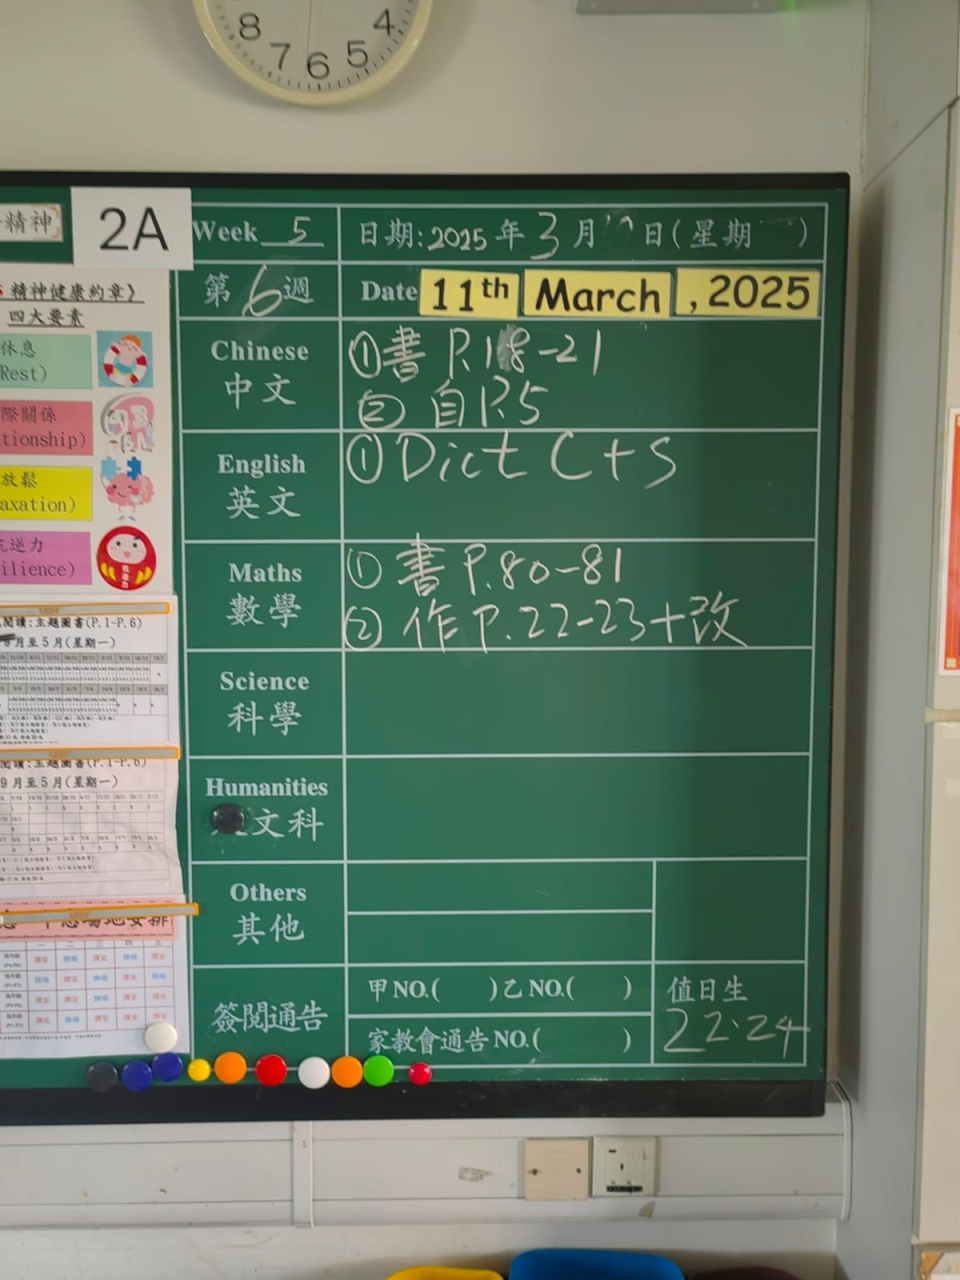 8 7 6 5 4
精神
2A
精神健康約章》
四大要素
休息
Rest)
際關係
tionship)
放鬆
axation)
逆力
ilience)
閱讀:主題圖書(P.1-P.6)
9月至5月(星期一)
閱讀:主題圖書(P.1-P.6)
9月至5月(星期一)
Week 5
日期:2025年3月 日(星期 )
第6週
Date 11th March , 2025
Chinese
中文
①書 P.18-21
② 自 P.5
English
英文
①Dict C+S
Maths
數學
① 書 P.80-81
② 作 P.22-23+改
Science
科學
Humanities
文科
Others
其他
簽閱通告
甲NO.( )乙NO.( )
家教會通告NO.( )
值日生
22·24